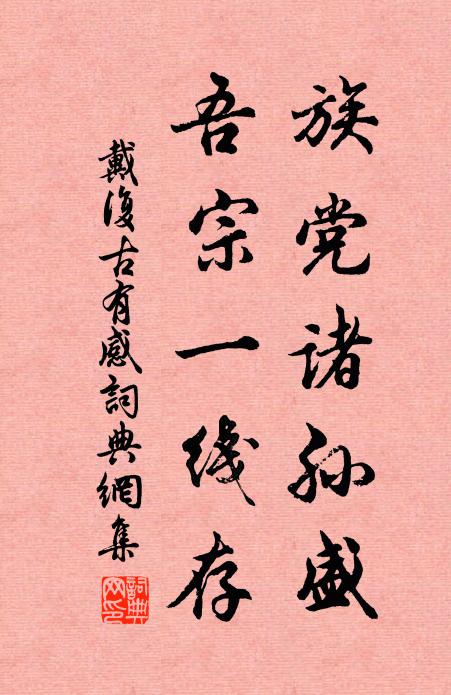 族党诸孙盛
吾宗一线存
戴復古有感詞典網集
詞典網印